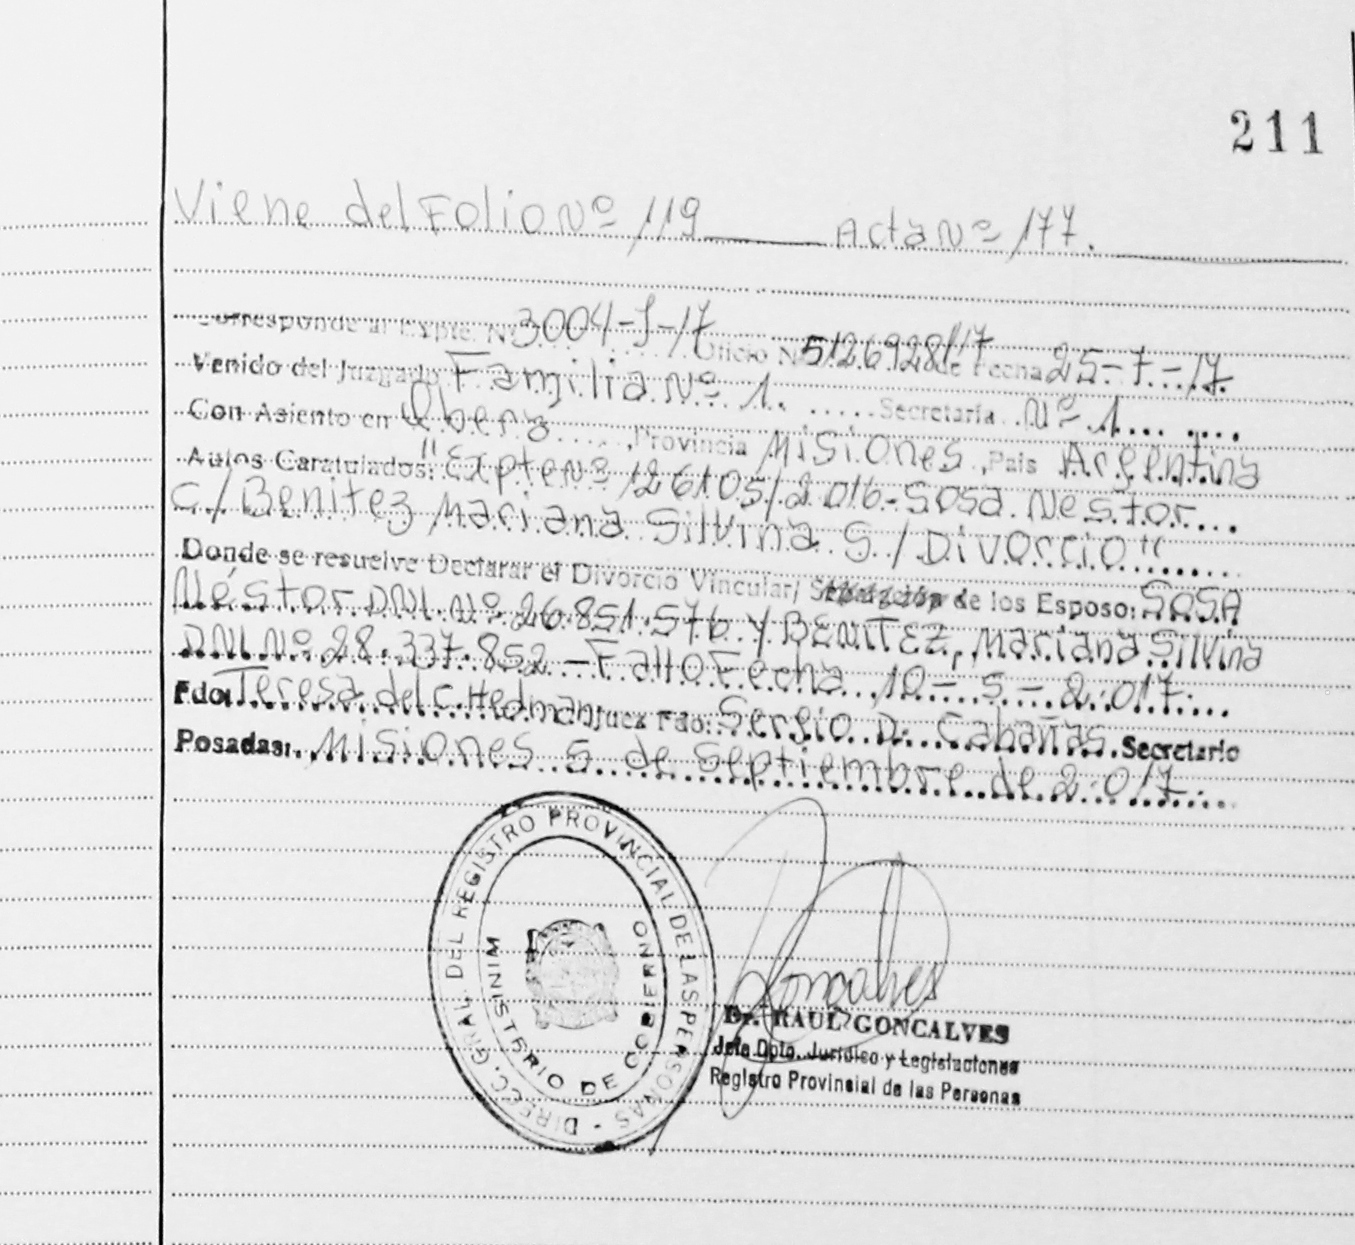 211
Viene del Folio Nº 119 Acta Nº 177.
Corresponde al Expte. Nº 3004-J-17 Oficio Nº 5126928/17 de Fecha 25-7-17
Venido del Juzgado Familia Nº 1. Secretaria Nº 1
Con Asiento en Oberá, Provincia Misiones, País Argentina
Autos Caratulados: "Expte Nº 126105/2016-Sosa Nestor
c/ Benitez Mariana Silvina S/ Divorcio"
Donde se resuelve Declarar el Divorcio Vincular/ Separación de los Esposo: SOSA
Néstor DNI. Nº 26.851.576 y BENITEZ, Mariana Silvina
DNI. Nº 28.337.852 - Fallo Fecha 10-5-2.017.
Fdo: Teresa del C. Hedman Juez Fdo: Sergio D. Cabañas Secretario
Posadas: Misiones 5 de Septiembre de 2.017
DIREC. GRAL. DEL REGISTRO PROVINCIAL DE LAS PERSONAS -
MINISTERIO DE GOBIERNO
Goncalves
Dr. RAUL GONCALVES
Jefe Dpto. Jurídico y Legislaciones
Registro Provincial de las Personas